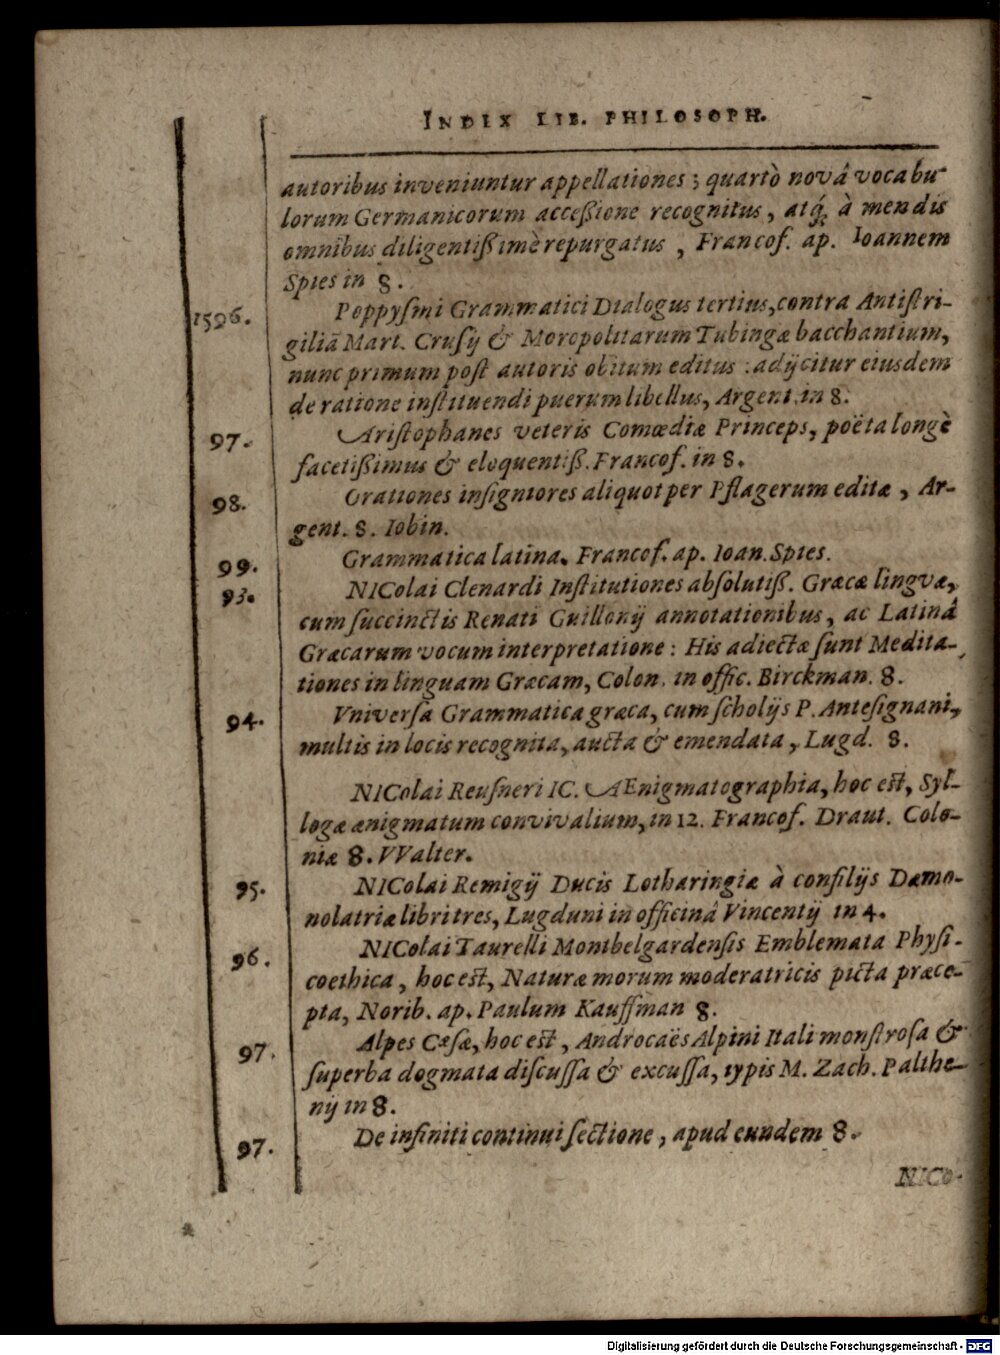 INDEX LIB. PHILOSOPH.
autoribus inveniuntur appellationes ; quartò novâ vocabu-
lorum Germanicorum acceßione recognitus, atq́; à mendis
omnibus diligentißimè repurgatus , Francof. ap. Ioannem
Spies in 8.
1596. Poppysmi Grammatici Dialogus tertius, contra Antistri-
giliā Mart. Crusij & Moropolitarum Tubingæ bacchantium,
nunc primum post autoris obitum editus : adijcitur eiusdem
de ratione instituendi puerum libellus, Argent. in 8.
97. Aristophanes veteris Comœdiæ Princeps, poëta longè
facetißimus & eloquentiß. Francof. in 8.
98. Orationes insigniores aliquot per Pflagerum editæ , Ar-
gent. 8. Iobin.
99. Grammatica latina. Francof. ap. Ioan. Spies.
93. NIColai Clenardi Institutiones absolutiß. Græcæ linguæ,
cum succinctis Renati Guillonij annotationibus, ac Latinâ
Græcarum vocum interpretatione : His adiectæ sunt Medita-
tiones in linguam Græcam, Colon. in offic. Birckman. 8.
94. Vniversa Grammatica græca, cum scholijs P. Antesignani,
multis in locis recognita, aucta & emendata , Lugd. 8.
NIColai Reusneri IC. AEnigmatographia, hoc est, Syl-
logæ ænigmatum convivalium, in 12. Francof. Draut. Colo-
niæ 8. VValter.
95. NIColai Remigij Ducis Lotharingiæ à consilijs Dæmo-
nolatriæ libri tres, Lugduni in officinâ Vincentij in 4.
96. NIColai Taurelli Montbelgardensis Emblemata Physi-
coethica , hoc est, Naturæ morum moderatricis picta præce-
pta, Norib. ap. Paulum Kauffman 8.
97. Alpes Cæsæ, hoc est , Androcaës Alpini Itali monstrosa &
superba dogmata discussa & excussa, typis M. Zach. Palthe-
nij in 8.
97. De infiniti continui sectione , apud eundem 8.
NICo-
Digitalisierung gefördert durch die Deutsche Forschungsgemeinschaft - DFG